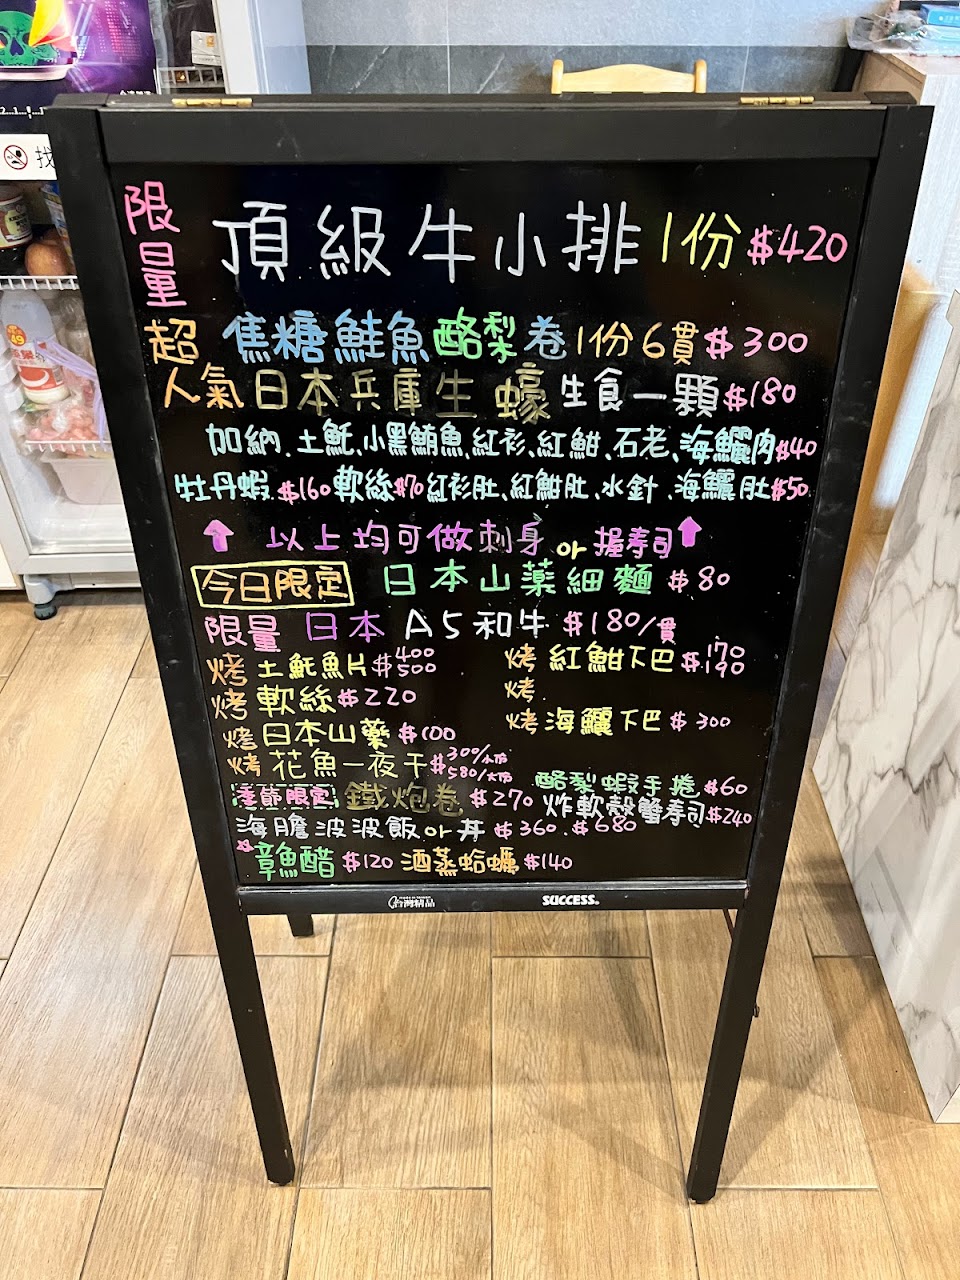 找
限量 頂級牛小排 1份 $420
超人氣 焦糖鮭魚酪梨卷 1份6貫 $300
日本兵庫生蠔 生食一顆 $180
加納.土魠.小黑鮪魚.紅衫.紅魽.石老.海鱺肉$40
牡丹蝦.$160 軟絲$70 紅衫肚.紅魽肚.水針.海鱺肚$50
以上均可做刺身 or 握壽司
今日限定 日本山藥細麵 $80
限量 日本A5和牛 $180/貫
烤土魠魚片$400 500
烤紅魽下巴$170 190
烤軟絲$220
烤
烤日本山藥$100
烤海鱺下巴$300
烤花魚一夜干$300/小份 580/大份
季節限定 鐵炮卷 $270
酪梨蝦手捲$60
炸軟殼蟹壽司$240
海膽波波飯or丼 $360.$680
章魚醋 $120 酒蒸蛤蠣 $140
台灣精品
SUCCESS.